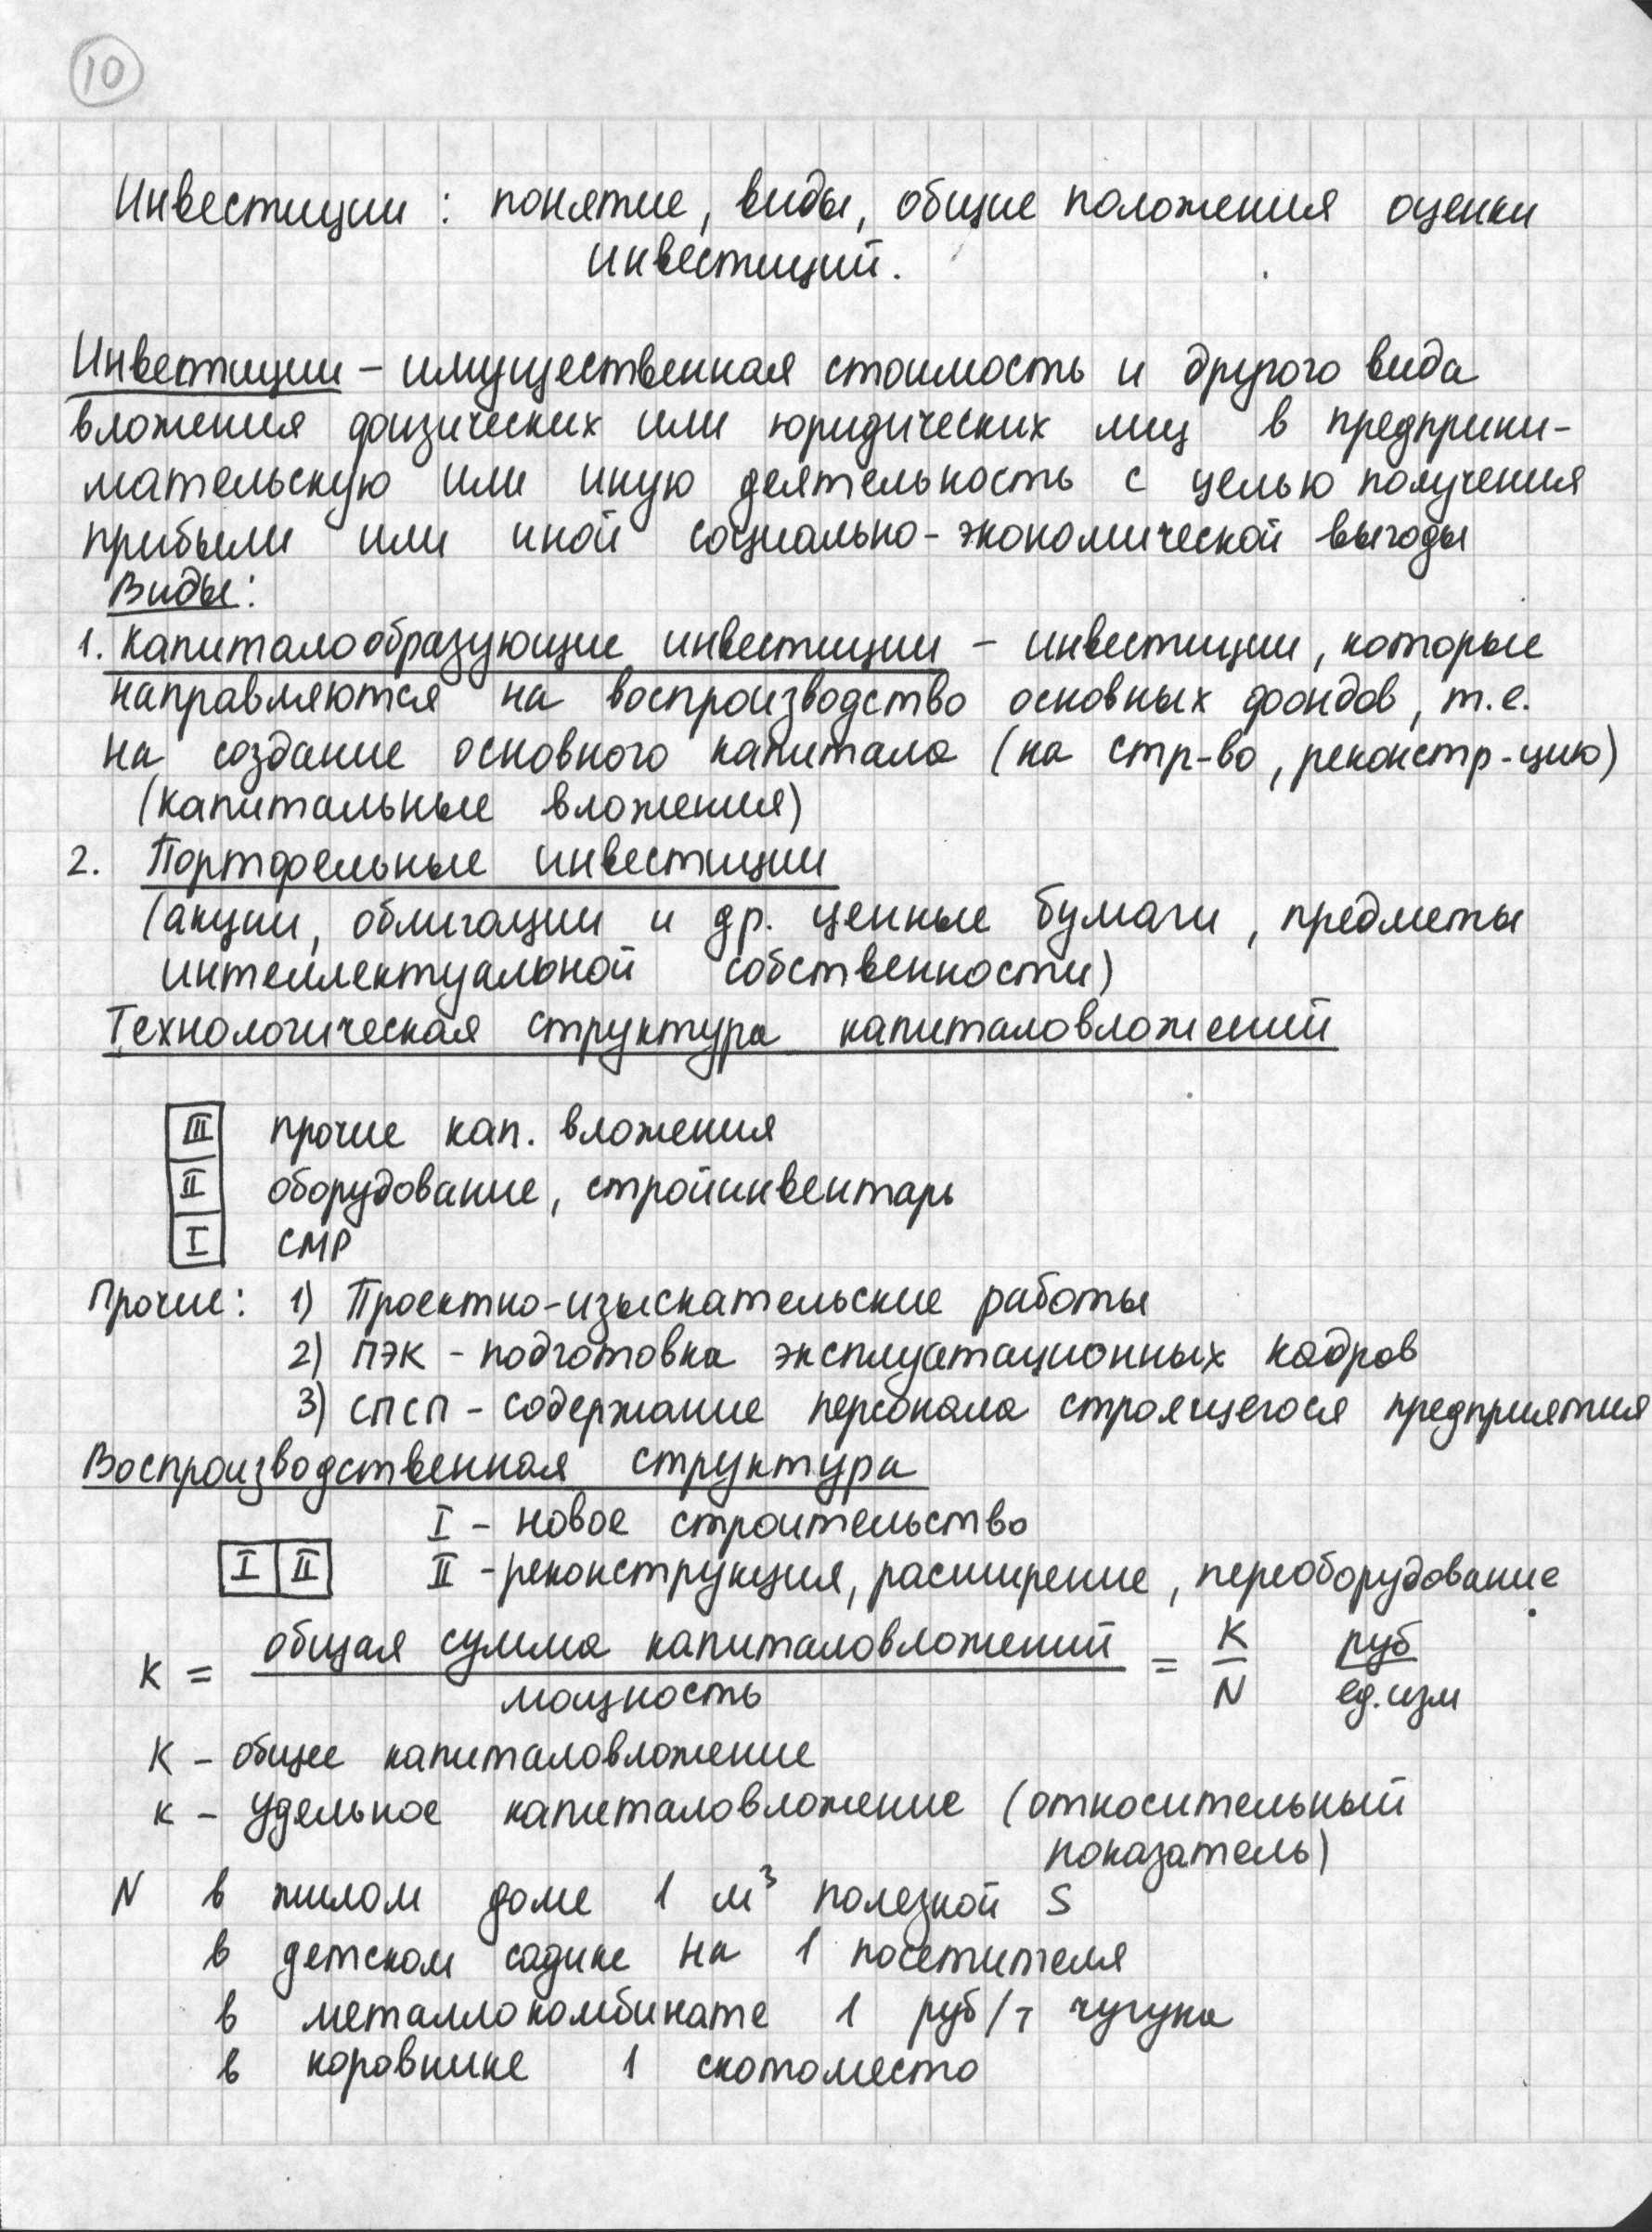 10
Инвестиции: понятие, виды, общие положения оценки
инвестиций.
Инвестиции – имущественная стоимость и другого вида
вложения физических или юридических лиц в предприни-
мательскую или иную деятельность с целью получения
прибыли или иной социально-экономической выгоды
Виды:
1. Капиталообразующие инвестиции – инвестиции, которые
направляются на воспроизводство основных фондов, т.е.
на создание основного капитала (на стр-во, реконстр-цию)
(капитальные вложения)
2. Портфельные инвестиции
(акции, облигации и др. ценные бумаги, предметы
интеллектуальной собственности)
Технологическая структура капиталовложений
III прочие кап. вложения
II оборудование, стройинвентарь
I СМР
Прочие: 1) Проектно-изыскательские работы
2) ПЭК – подготовка эксплуатационных кадров
3) СПСП – содержание персонала строящегося предприятия
Воспроизводственная структура
I – новое строительство
I II II – реконструкция, расширение, переоборудование
к = общая сумма капиталовложений / мощность = К / N руб / ед.изм
К – общее капиталовложение
к – удельное капиталовложение (относительный
показатель)
N в жилом доме 1 м³ полезной S
в детском садике на 1 посетителя
в металлокомбинате 1 руб/т чугуна
в коровнике 1 скотоместо